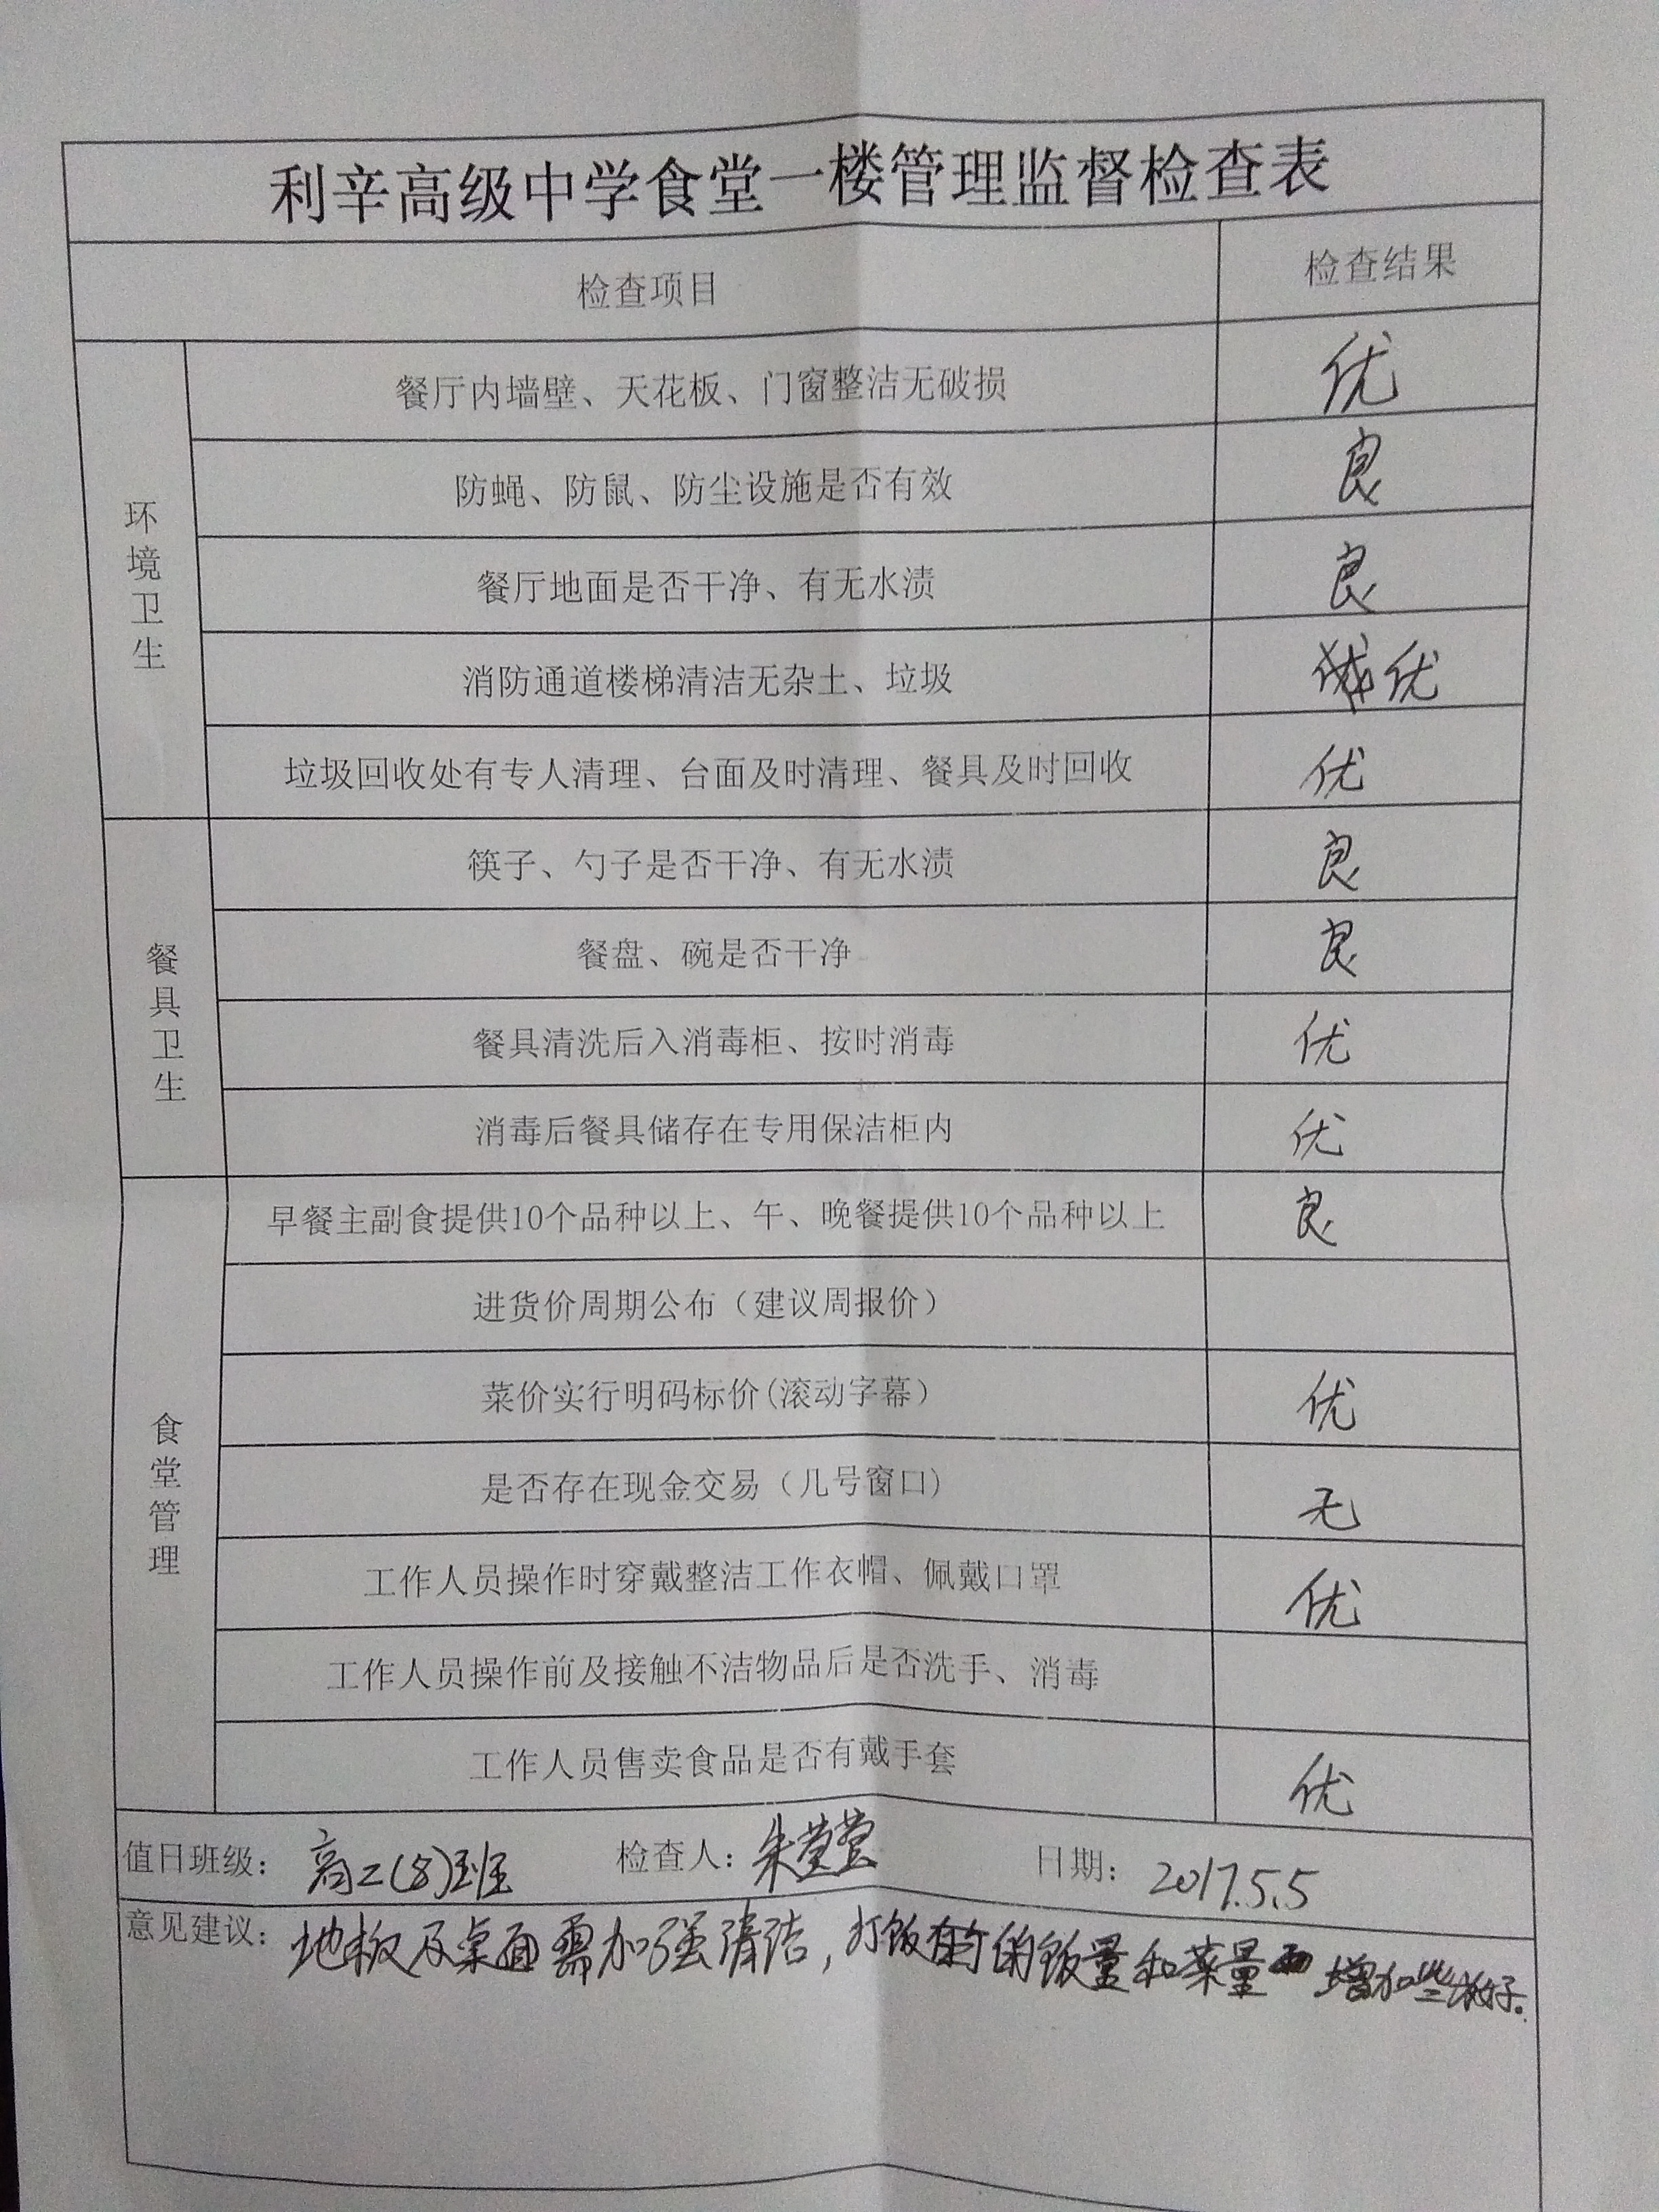 利辛高级中学食堂一楼管理监督检查表
检查项目 检查结果
环境卫生
餐厅内墙壁、天花板、门窗整洁无破损 优
防蝇、防鼠、防尘设施是否有效 良
餐厅地面是否干净、有无水渍 良
消防通道楼梯清洁无杂土、垃圾 优
垃圾回收处有专人清理、台面及时清理、餐具及时回收 优
餐具卫生
筷子、勺子是否干净、有无水渍 良
餐盘、碗是否干净 良
餐具清洗后入消毒柜、按时消毒 优
消毒后餐具储存在专用保洁柜内 优
食堂管理
早餐主副食提供10个品种以上、午、晚餐提供10个品种以上 良
进货价周期公布（建议周报价）
菜价实行明码标价(滚动字幕） 优
是否存在现金交易（几号窗口) 无
工作人员操作时穿戴整洁工作衣帽、佩戴口罩 优
工作人员操作前及接触不洁物品后是否洗手、消毒
工作人员售卖食品是否有戴手套 优
值日班级： 高二(8)班 检查人： 朱莹莹 日期： 2017.5.5
意见建议： 地板及桌面需加强清洁，打饭的饭量和菜量增加些就好.